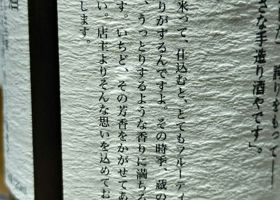 さな手造り酒やです」。
米って、仕込むと、とてもフルーティ
りがするんですよ。その時季、蔵の
、うっとりするような香りに満ちる
す。いちど、その芳香をかがせてあ
い。店主よりそんな思いを込めてお
します。